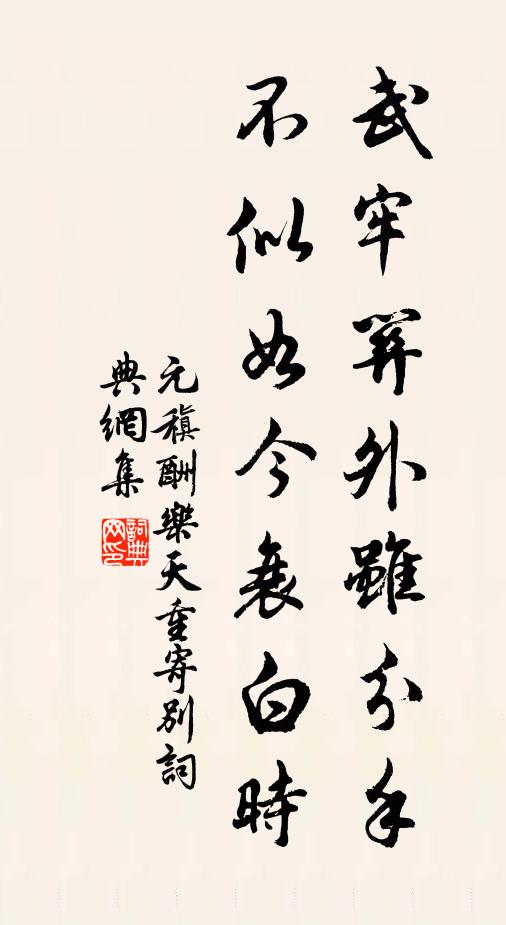 武牢關外雖分手
不似如今衰白時
元稹酬樂天重寄別詞
典網集
詞典網印